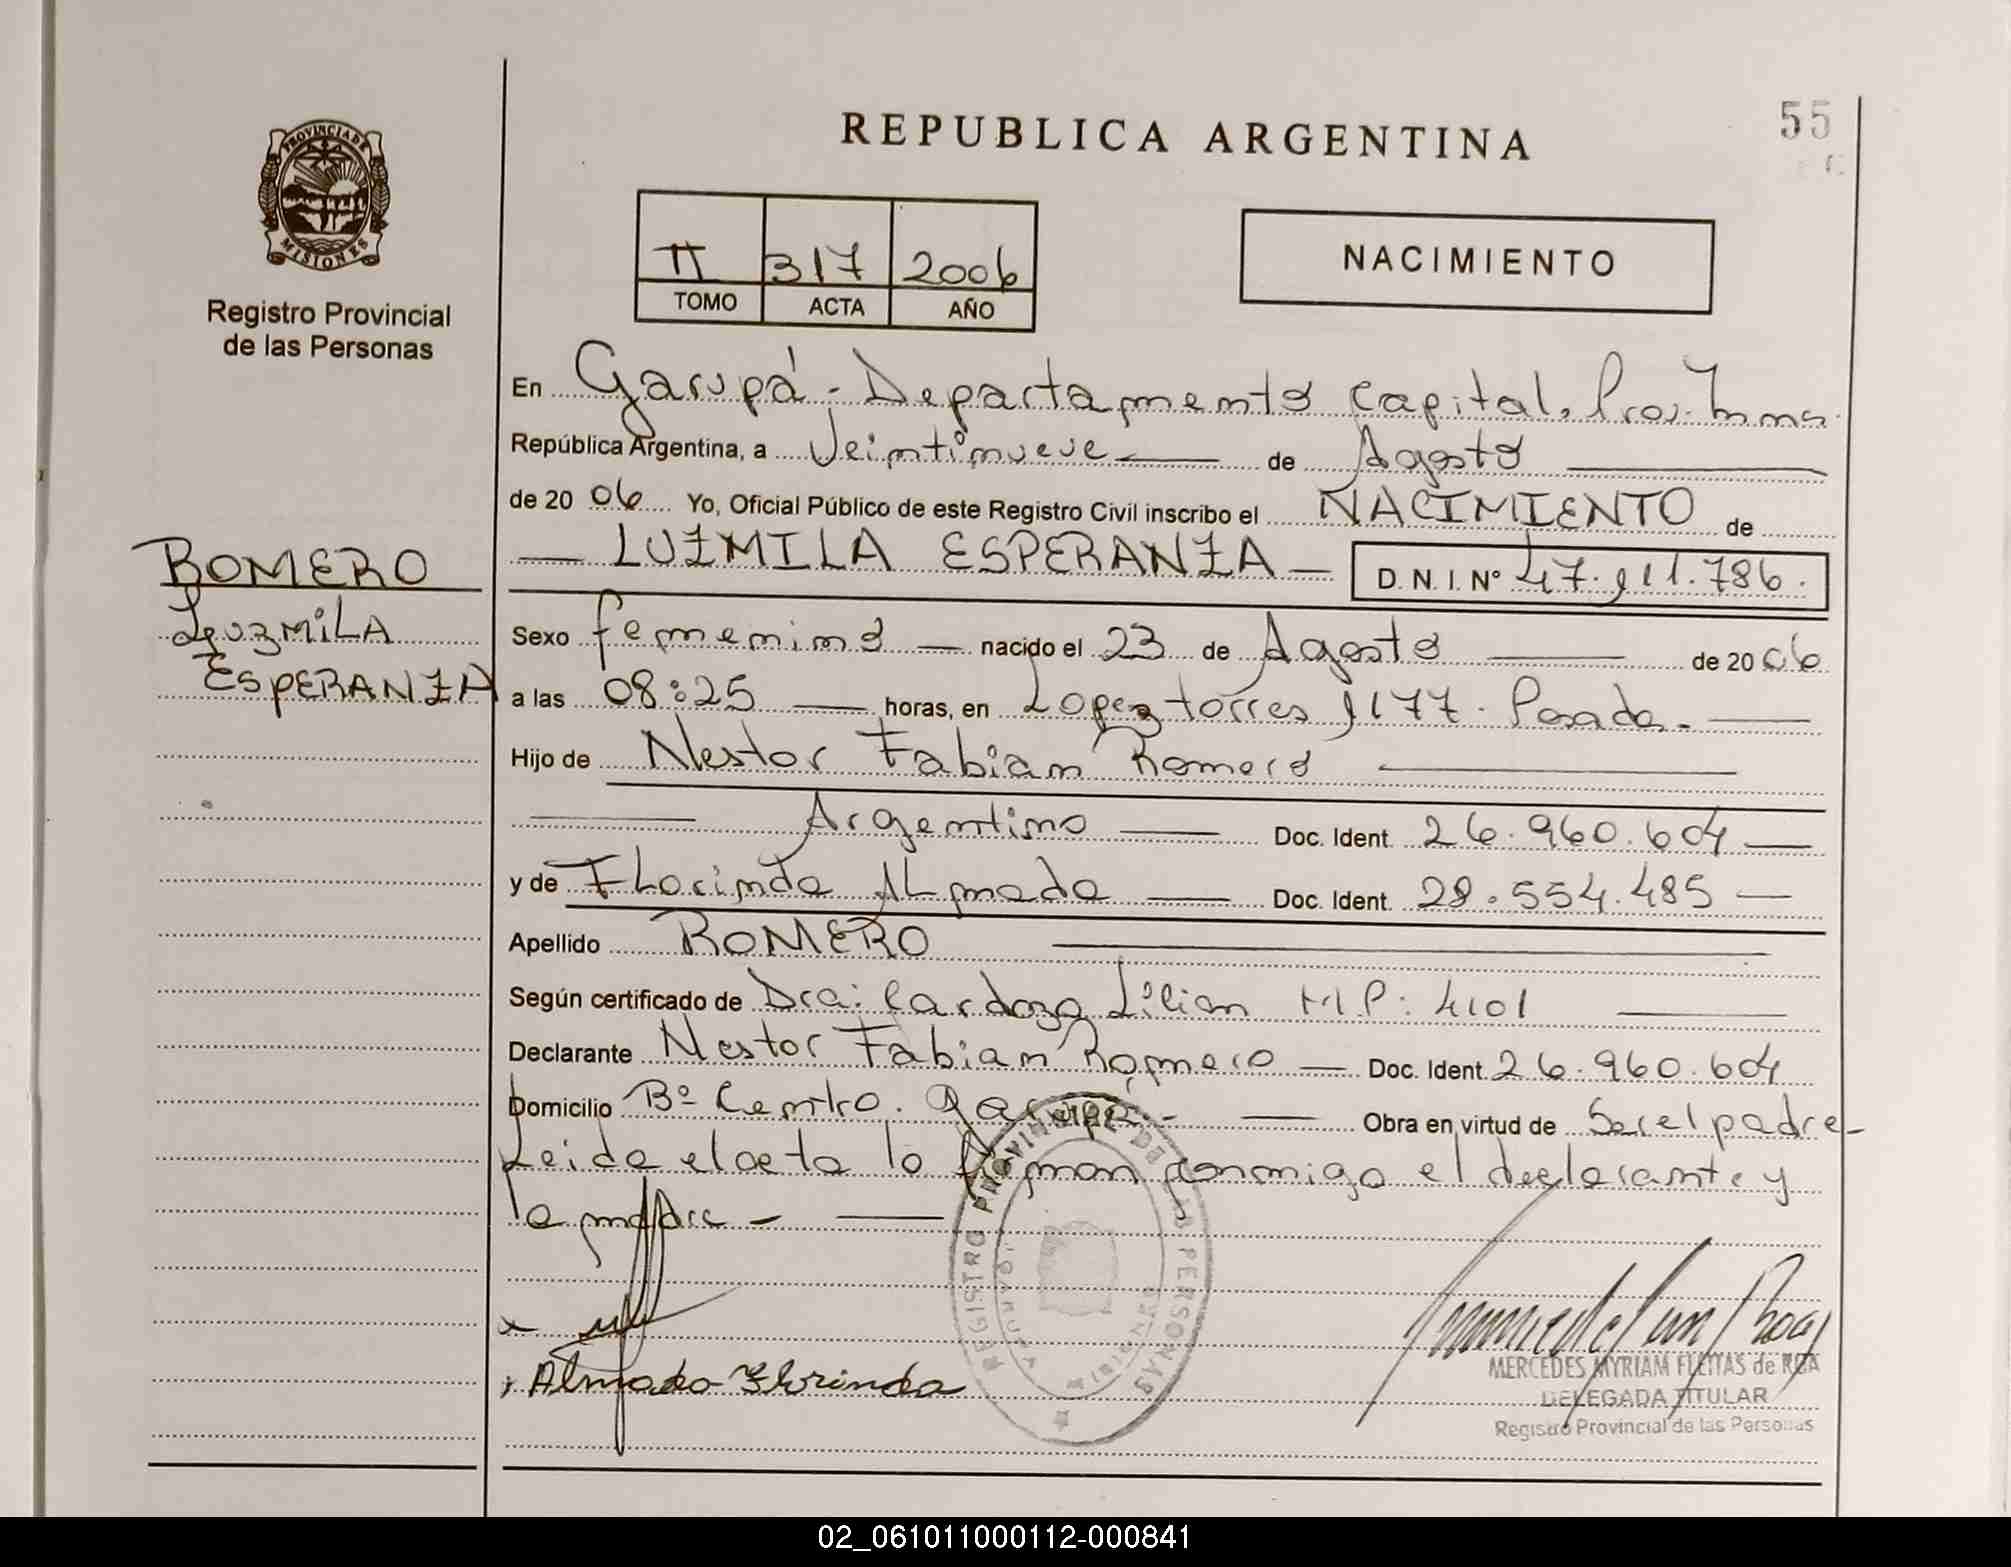 REPUBLICA ARGENTINA
55
PROVINCIA DE
MISIONES
Registro Provincial
de las Personas
II 317 2006
TOMO ACTA AÑO
NACIMIENTO
En Garupá - Departamento Capital, Prov. Mnes.
República Argentina, a Veintinueve de Agosto
de 20 06 Yo, Oficial Público de este Registro Civil inscribo el NACIMIENTO de
LUZMILA ESPERANZA D.N.I. Nº 47.911.786.
ROMERO
Luzmila
ESPERANZA
Sexo femenino nacido el 23 de Agosto de 20 06
a las 08:25 horas, en Lopez torres 1177. Posadas
Hijo de Nestor Fabian Romero
Argentino Doc. Ident. 26.960.604
y de Florinda Almada Doc. Ident. 28.554.485
Apellido ROMERO
Según certificado de Dra: Cardozo Lilian M.P: 4101
Declarante Nestor Fabian Romero Doc. Ident 26.960.604
Domicilio Bº Centro. Garupá - Obra en virtud de Ser el padre -
Leida el acta lo firman conmigo el declarante y
la madre -
REGISTRO PROVINCIAL DE LAS PERSONAS
Almada Florinda
MERCEDES MYRIAM FLEITAS de ROA
DELEGADA TITULAR
Registro Provincial de las Personas
02_061011000112-000841